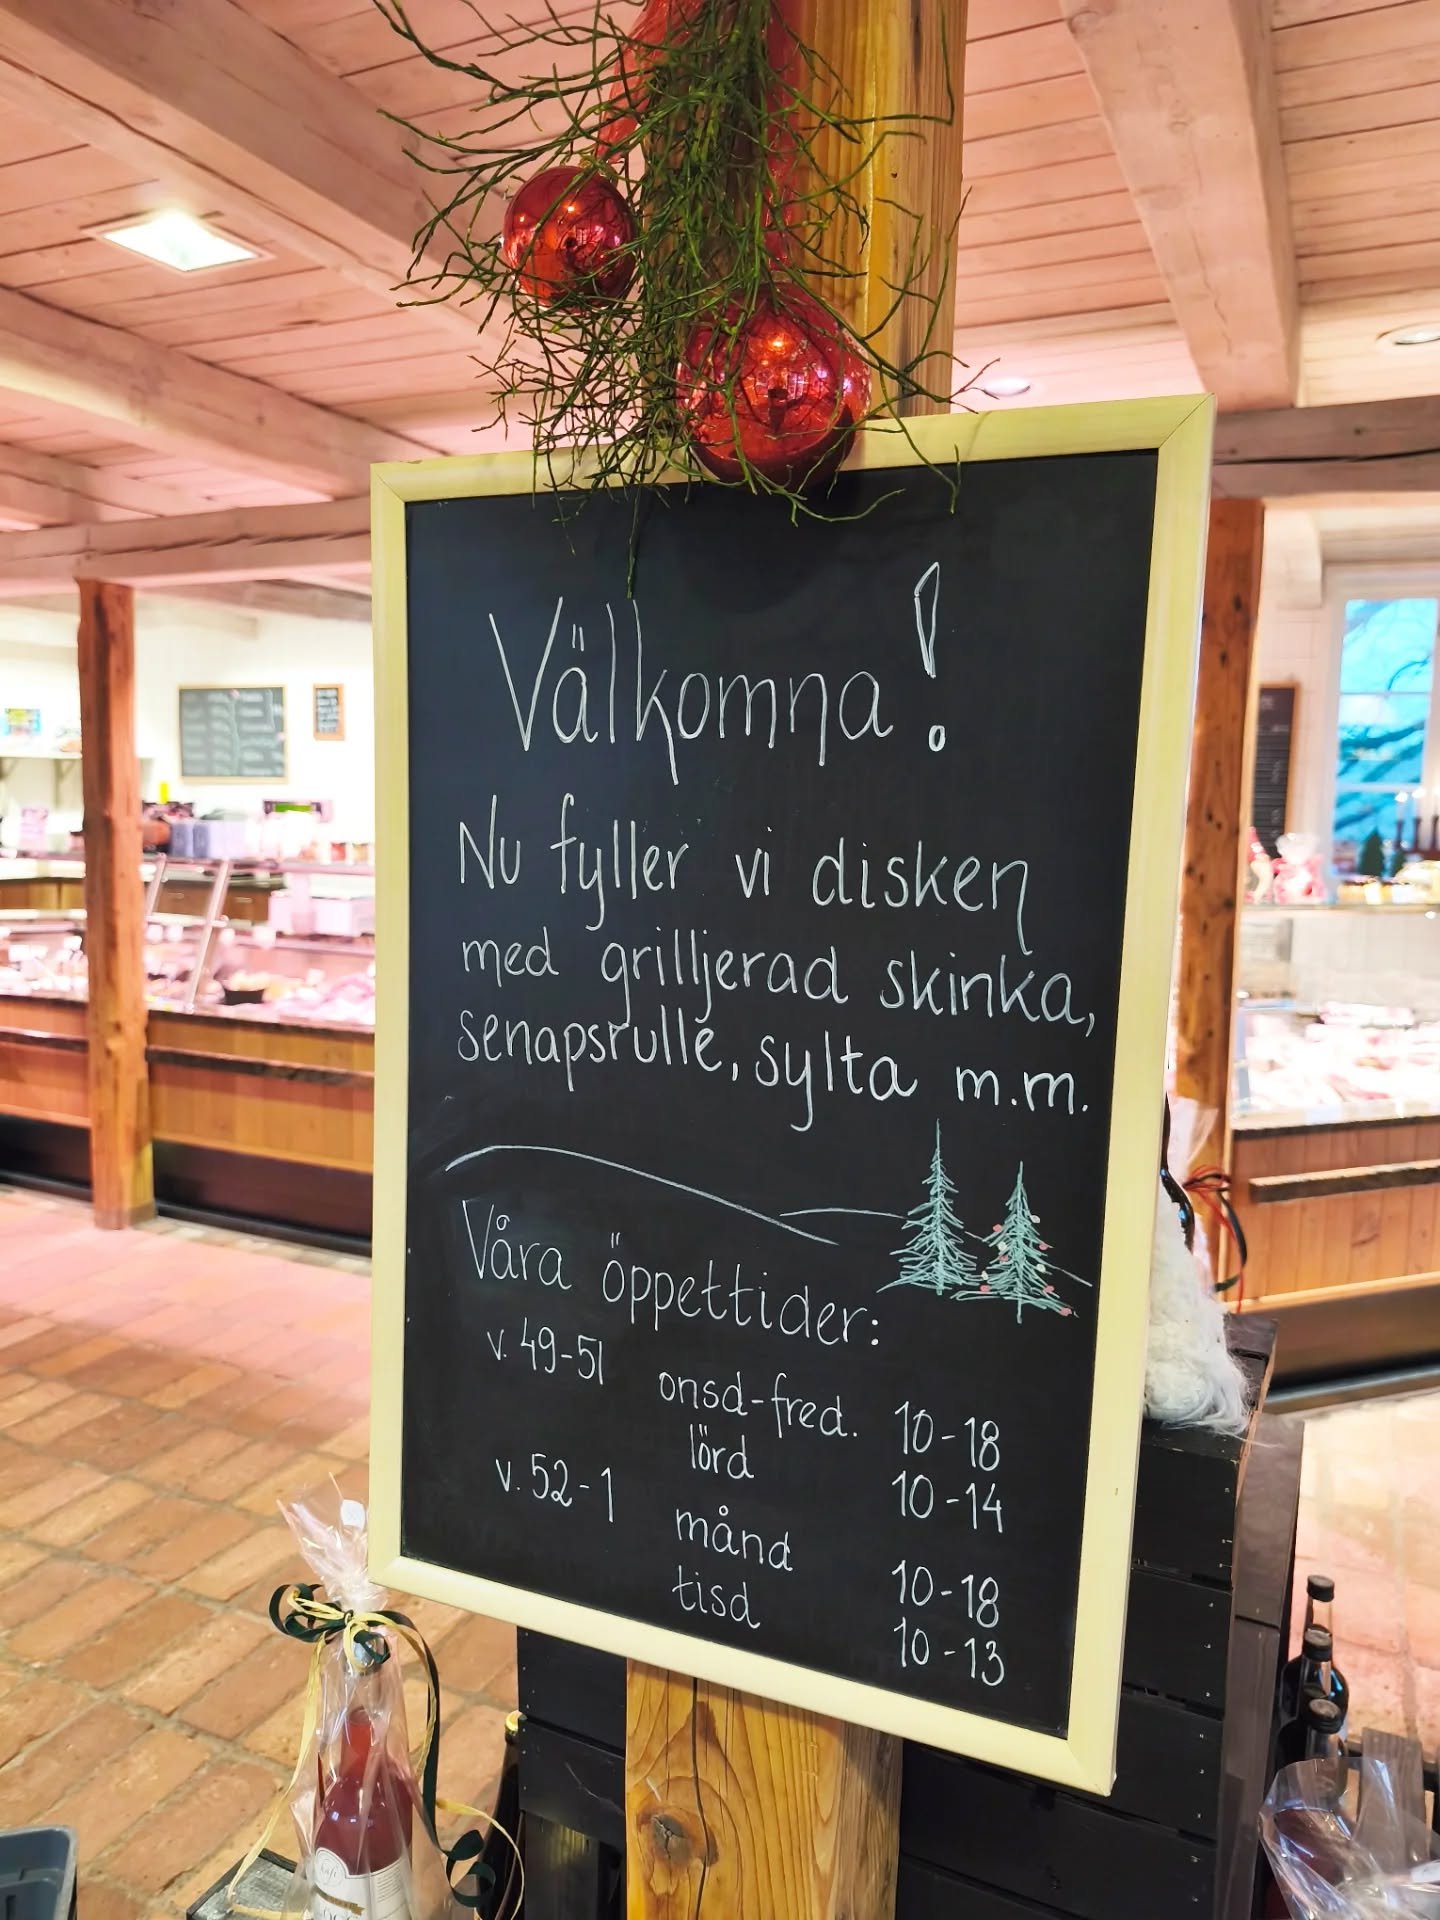 Välkomna!
Nu fyller vi disken
med grilljerad skinka,
senapsrulle, sylta m.m.
Våra öppettider:
v. 49-51 onsd-fred. 10-18
lörd 10-14
v. 52-1 månd 10-18
tisd 10-13